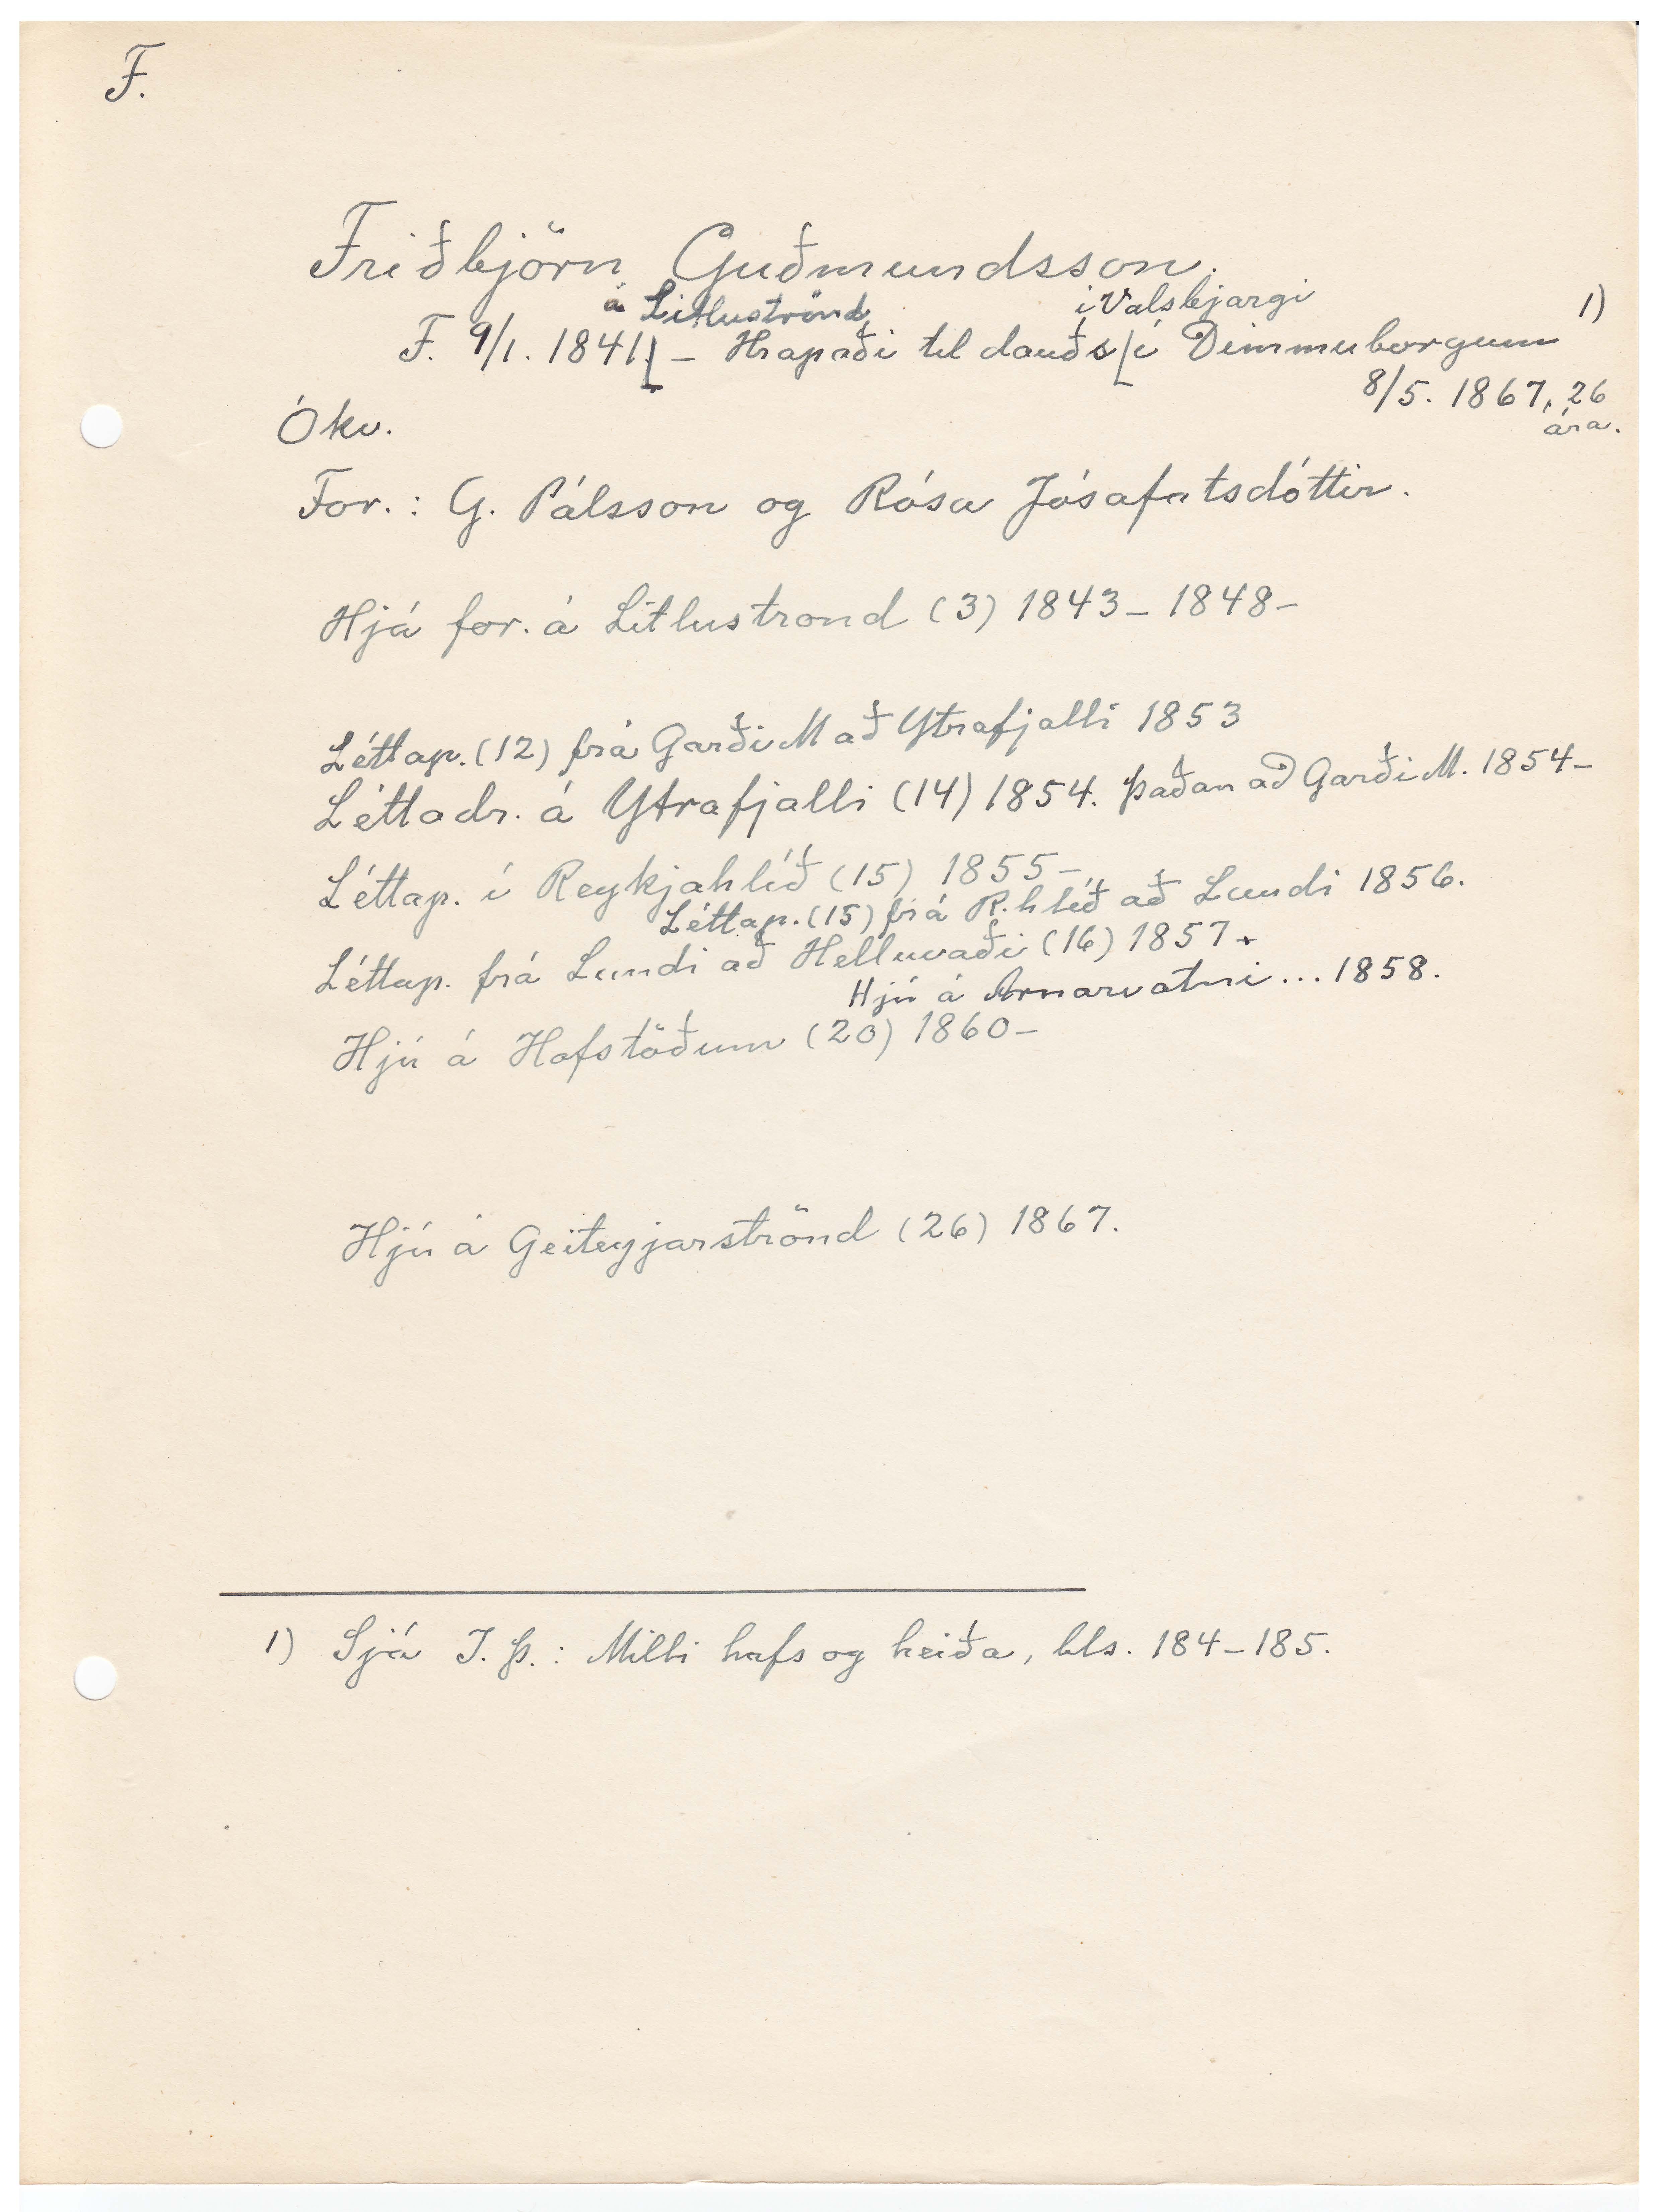 F.
Friðbjörn Guðmundsson.
á Litluströnd í Valsbjargi 1)
F. 9/1. 1841. - Hrapaði til dauðs í Dimmuborgum
8/5. 1867, 26
ára.
Ókv.
For.: G. Pálsson og Rósa Jósafatsdóttir.
Hjá for. á Litlustrond (3) 1843 - 1848 -
Léttap. (12) frá Garði M að Ytrafjalli 1853
Léttadr. á Ytrafjalli (14) 1854. Þaðan að Garði M. 1854 -
Léttap. í Reykjahlíð (15) 1855 -
Léttap. (15) frá R.hlíð að Lundi 1856.
Léttap. frá Lundi að Helluvaði (16) 1857.
Hjú á Arnarvatni ... 1858.
Hjú á Hofstöðum (20) 1860 -
Hjú á Geiteyjarströnd (26) 1867.
1) Sjá J. Þ.: Milli hafs og heiða, bls. 184 - 185.